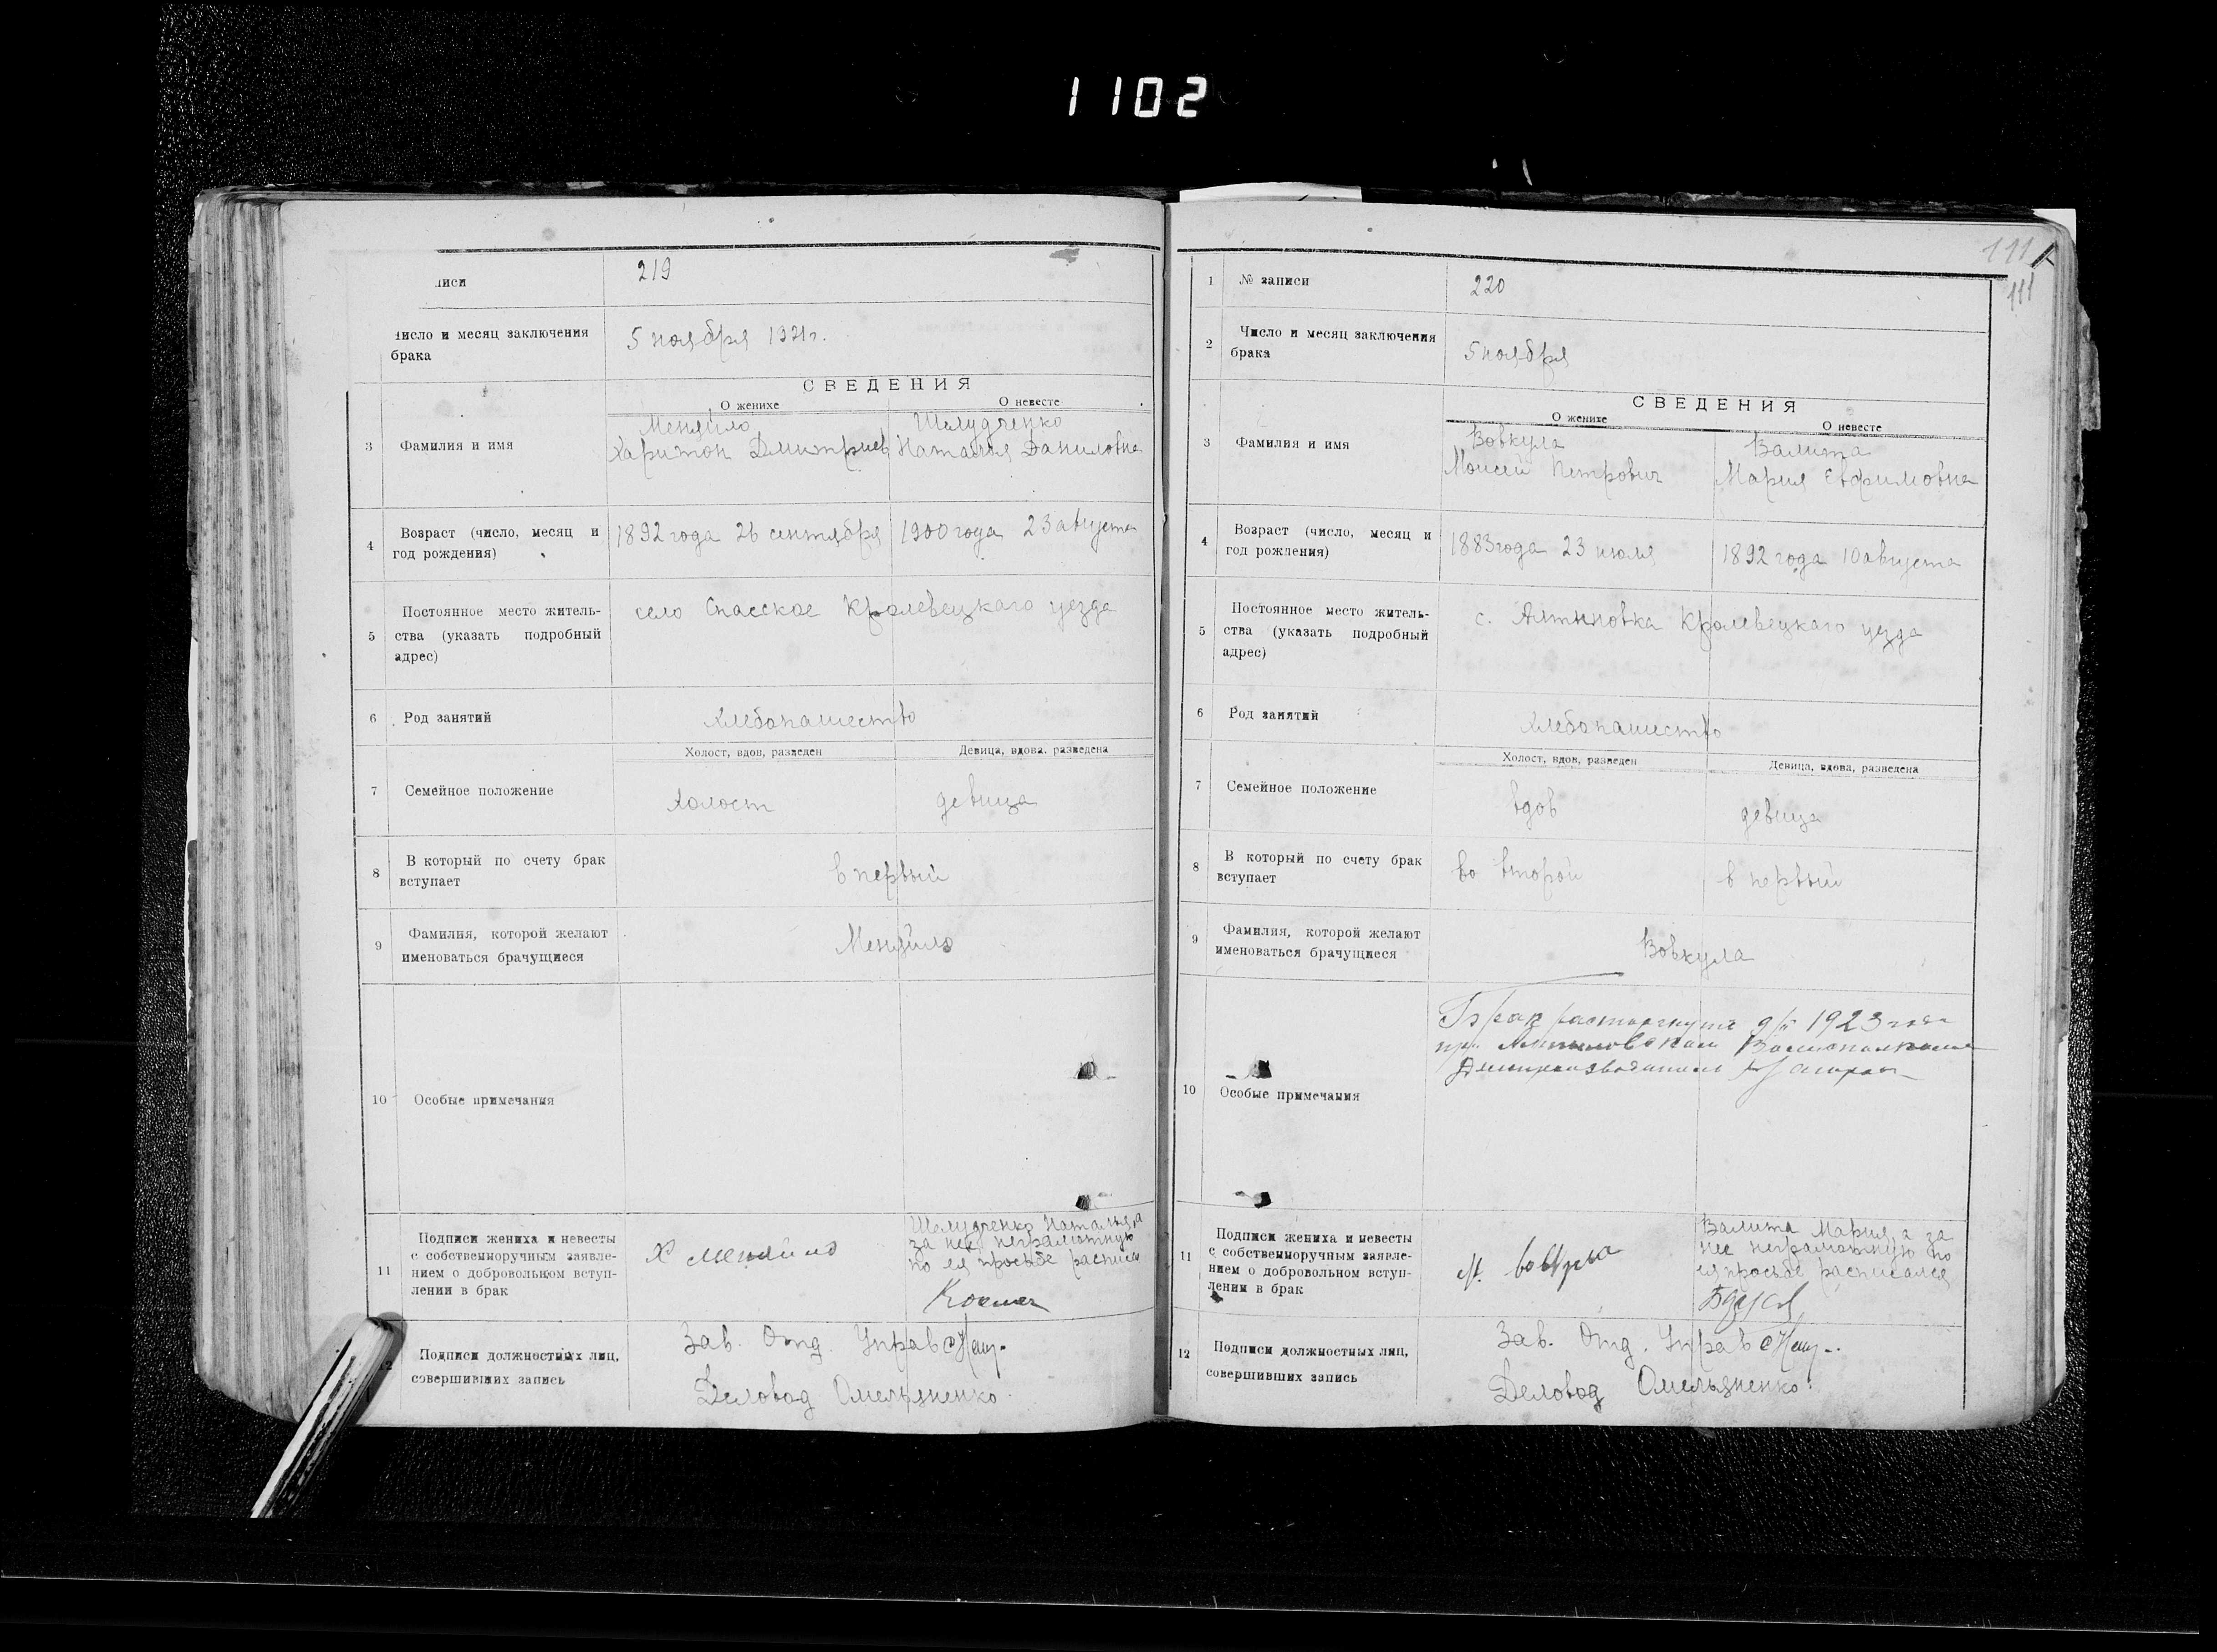 1102
лиси
219
число и месяц заключения
брака
5 ноября 1921г.
СВЕДЕНИЯ
О женихе
О невесте
3
Фамилия и имя
Меняйло
Харитон Дмитриев
Шелудченко
Наталья Даниловна
4
Возраст (число, месяц и
год рождения)
1892 года 26 сентября
1900 года 23 августа
5
Постоянное место житель-
ства (указать подробный
адрес)
село Спасское Кролевецкаго уезда
6
Род занятий
Хлебопашество
Холост, вдов, разведен
Девица, вдова. разведена
7
Семейное положение
Холост
девица
8
В который по счету брак
вступает
в первый
9
Фамилия, которой желают
именоваться брачущиеся
Меняйло
10
Особые примечания
11
Подписи жениха и невесты
с собственноручным заявле-
нием о добровольном вступ-
лении в брак
Х Меняйло
Шелудченко Наталья, а
за нее неграмотную
по ея просьбе расписал
12
Подписи должностных лиц,
совершивших запись
Зав. Отд. Управ
Деловод Омельяненко.
111
111
1
№ записи
220
2
Число и месяц заключения
брака
5 ноября
СВЕДЕНИЯ
О женихе
О невесте
3
Фамилия и имя
Вовкула
Моисей Петрович
Валита
Мария Ефримовна
4
Возраст (число, месяц и
год рождения)
1883 года 23 июля
1892 года 10 августа
5
Постоянное место житель-
ства (указать подробный
адрес)
с. Алтыновка Кролевецкаго уезда
6
Род занятий
Хлебопашество
Холост, вдов, разведен
Девица, вдова, разведена
7
Семейное положение
вдов
девица
8
В который по счету брак
вступает
во второй
в первый
9
Фамилия, которой желают
именоваться брачущиеся
Вовкула
10
Особые примечания
Брак расторгнут 1923 года
пр. Алтыновском
Делопроизводитель
11
Подписи жениха и невесты
с собственноручным заявле-
нием о добровольном вступ-
лении в брак
М. Вовкула
Валита Мария, а за
нее неграмотную по
ея просьбе расписался
12
Подписи должностных лиц,
совершивших запись
Зав. Отд. Управ
Деловод Омельяненко.